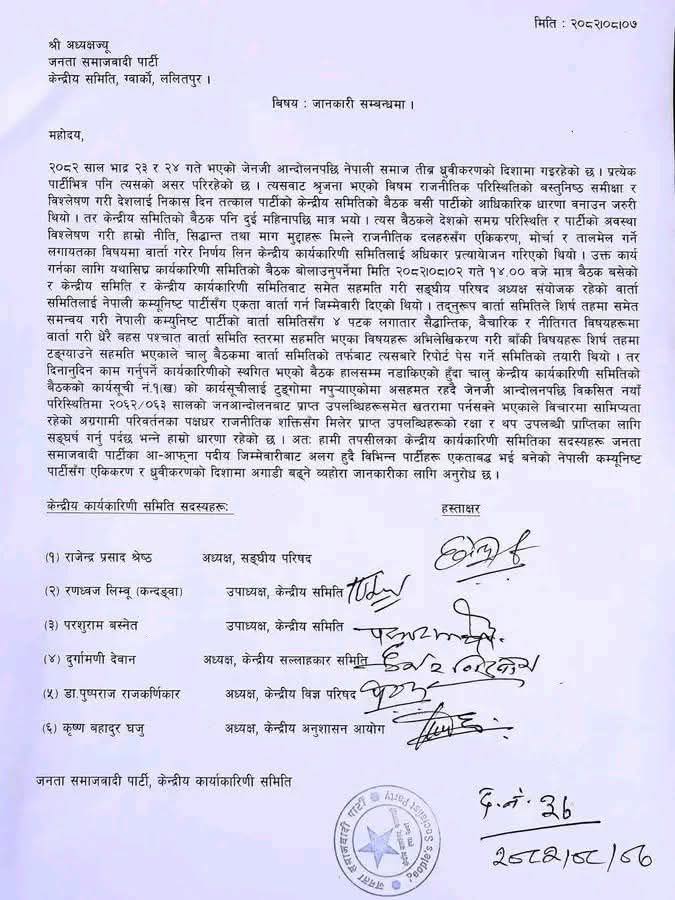 मिति : २०८२।०८।०७
श्री अध्यक्षज्यू
जनता समाजवादी पार्टी
केन्द्रीय समिति, ग्वार्को, ललितपुर ।
बिषय : जानकारी सम्बन्धमा ।
महोदय,
२०८२ साल भाद्र २३ र २४ गते भएको जेनजी आन्दोलनपछि नेपाली समाज तीब्र ध्रुवीकरणको दिशामा गइरहेको छ । प्रत्येक
पार्टीभित्र पनि त्यसको असर परिरहेको छ । त्यसवाट श्रृजना भएको विषम राजनीतिक परिस्थितिको बस्तुनिष्ठ समीक्षा र
विश्लेषण गरी देशलाई निकास दिन तत्काल पार्टीको केन्द्रीय समितिको बैठक बसी पार्टीको आधिकारिक धारणा बनाउन जरुरी
थियो । तर केन्द्रीय समितिको बैठक पनि दुई महिनापछि मात्र भयो । त्यस बैठकले देशको समग्र परिस्थिति र पार्टीको अवस्था
विश्लेषण गरी हाम्रो नीति, सिद्धान्त तथा माग मुद्दाहरू मिल्ने राजनीतिक दलहरुसँग एकिकरण, मोर्चा र तालमेल गर्ने
लगायतका बिषयमा वार्ता गरेर निर्णय लिन केन्द्रीय कार्यकारिणी समितिलाई अधिकार प्रत्यायोजन गरिएको थियो । उक्त कार्य
गर्नका लागि यथासिघ्र कार्यकारिणी समितिको बैठक बोलाउनुपर्नेमा मिति २०८२।०८।०२ गते १४.०० बजे मात्र बैठक बसेको
र केन्द्रीय समिति र केन्द्रीय कार्यकारिणी समितिबाट समेत सहमति गरी सङ्घीय परिषद अध्यक्ष संयोजक रहेको वार्ता
समितिलाई नेपाली कम्यूनिष्ट पार्टीसँग एकता वार्ता गर्न जिम्मेवारी दिएको थियो । तद्नुरूप वार्ता समितिले शिर्ष तहमा समेत
समन्वय गरी नेपाली कम्युनिष्ट पार्टीको वार्ता समितिसँग ४ पटक लगातार सैद्धान्तिक, बैचारिक र नीतिगत विषयहरूमा
वार्ता गरी धेरै बहस पश्चात वार्ता समिति स्तरमा सहमति भएका विषयहरू अभिलेखिकरण गरी बाँकी विषयहरू शिर्ष तहमा
टङ्ग्याउने सहमति भएकाले चालु बैठकमा वार्ता समितिको तर्फबाट त्यसबारे रिपोर्ट पेस गर्ने समितिको तयारी थियो । तर
दिनानुदिन काम गर्नुपर्ने कार्यकारिणीको स्थगित भएको बैठक हालसम्म नडाकिएको हुँदा चालु केन्द्रीय कार्यकारिणी समितिको
बैठकको कार्यसूची नं.१(ख) को कार्यसूचीलाई टुङ्गोमा नपुऱ्याएकोमा असहमत रहदै जेनजी आन्दोलनपछि विकसित नयाँ
परिस्थितिमा २०६२/०६३ सालको जनआन्दोलनबाट प्राप्त उपलब्धिहरूसमेत खतरामा पर्नसक्ने भएकाले बिचारमा सामिप्यता
रहेको अग्रगामी परिवर्तनका पक्षधर राजनीतिक शक्तिसँग मिलेर प्राप्त उपलब्धिहरुको रक्षा र थप उपलब्धी प्राप्तिका लागि
सङ्घर्ष गर्नु पर्दछ भन्ने हाम्रो धारणा रहेको छ । अतः हामी तपसीलका केन्द्रीय कार्यकारिणी समितिका सदस्यहरू जनता
समाजवादी पार्टीका आ-आफूना पदीय जिम्मेवारीबाट अलग हुदै विभिन्न पार्टीहरू एकताबद्ध भई बनेको नेपाली कम्यूनिष्ट
पार्टीसँग एकिकरण र ध्रुवीकरणको दिशामा अगाडी बढ्ने व्यहोरा जानकारीका लागि अनुरोध छ ।
केन्द्रीय कार्यकारिणी समिति सदस्यहरू: हस्ताक्षर
(१) राजेन्द्र प्रसाद श्रेष्ठ अध्यक्ष, सङ्घीय परिषद
(२) रणध्वज लिम्बू (कन्दङ्वा) उपाध्यक्ष, केन्द्रीय समिति
(३) परशुराम बस्नेत उपाध्यक्ष, केन्द्रीय समिति
(४) दुर्गामणी देवान अध्यक्ष, केन्द्रीय सल्लाहकार समिति
(५) डा.पुष्पराज राजकर्णिकार अध्यक्ष, केन्द्रीय विज्ञ परिषद
(६) कृष्ण बहादुर घजु अध्यक्ष, केन्द्रीय अनुशासन आयोग
जनता समाजवादी पार्टी, केन्द्रीय कार्याकारिणी समिति
द.नं. ३६
२०८२/०८/०७
जनता समाजवादी पार्टी
People's Socialist Party